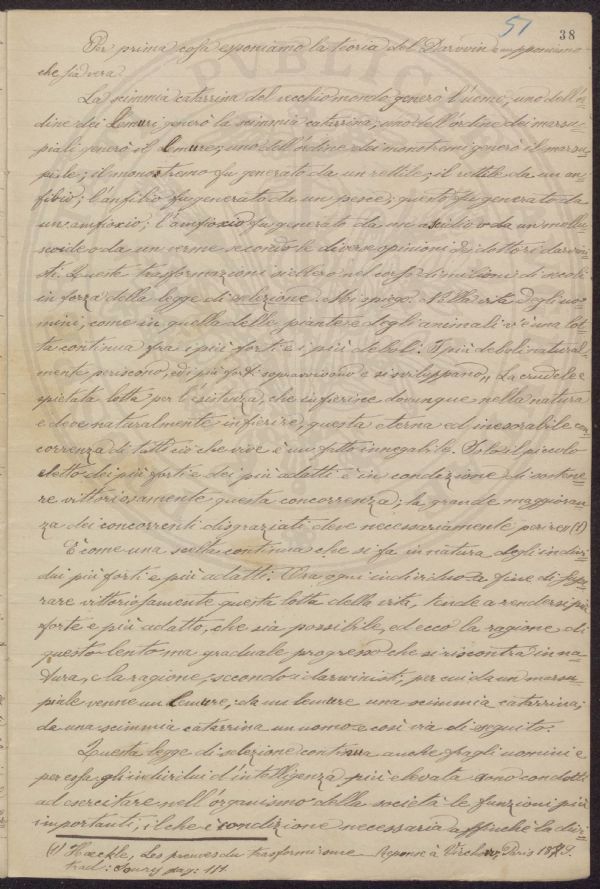 51 38
Per prima cosa esponiamo la teoria del Darwin e supponiamo
che sia vera.
La scimmia catarrina del vecchio mondo generò l'uomo; uno dell'or-
dine dei Lemuri generò la scimmia catarrina; uno dell'ordine dei marsu-
piali generò il Lemure; uno dell'ordine dei monotremi generò il marsu-
piale; il monotremo fu generato da un rettile; il rettile da un an-
fibio; l'anfibio fu generato da un pesce; questo fu generato da
un amfioxio; l'amfioxio fu generato da un ascidio o da un mollu-
scoide o da un verme secondo le diverse opinioni di dottori darwini-
sti. Queste trasformazioni si ebbero nel corso di milioni di secoli
in forza della legge di selezione. Mi spiego. Nella vita degli uo-
mini, come in quella delle piante e degli animali v'è una lot-
ta continua fra i più forti e i più deboli. I più deboli natural-
mente periscono, ed i più forti sopravvivono e si sviluppano. "La crudele e
spietata lotta per l'esistenza, che infierisce dovunque nella natura
e deve naturalmente infierire, questa eterna ed inesorabile con-
correnza di tutto ciò che vive è un fatto innegabile. Solo il piccolo
eletto dei più forti e dei più adatti è in condizione di sostene-
re vittoriosamente questa concorrenza; la grande maggioran-
za dei concorrenti disgraziati deve necessariamente perire" (1)
È come una scelta continua che si fa in natura degli indivi-
dui più forti e più adatti. Ora ogni individuo a fine di supe-
rare vittoriosamente questa lotta della vita, tende a rendersi più
forte e più adatto, che sia possibile, ed ecco la ragione di
questo lento ma graduale progresso che si riscontra in na-
tura, e la ragione, secondo i darwinisti, per cui da un marsu-
piale venne un Lemure; da un lemure una scimmia catarrina;
da una scimmia catarrina un uomo e così via di seguito.
Questa legge di selezione continua anche fra gli uomini e
per essa gli individui d'intelligenza più elevata sono condotti
ad esercitare nell'organismo della società le funzioni più
importanti, il che è condizione necessaria affinchè la divi-
(1) Haeckle, Les preuves du trasformisme Reponse à Virchow, Paris 1879.
trad: Soury pag: 111